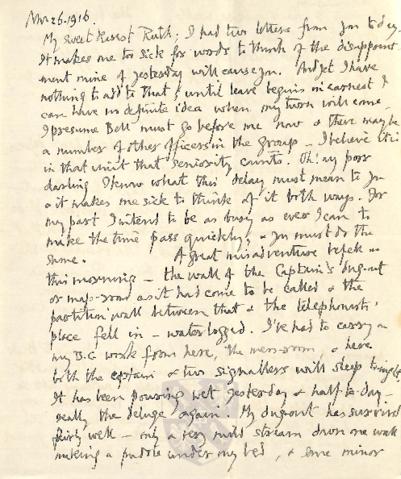 Nov. 26. 1916.
My sweetest Ruth; I had two letters from you today.
It makes me too sick for words to think of the disappoint-
ment mine of yesterday will cause you. And yet I have
nothing to add to that & until leave begins in earnest I
can have no definite idea when my turn will come.
I presume Bell must go before me now & there may be
a number of other officers in the Group – I believe it is
in that unit that seniority counts. Oh! my poor
darling I know what this delay must mean to you
& it makes me sick to think of it both ways. For
my part I intend to be as busy as ever I can to
make the time pass quickly, & you must do the
same. A great misadventure befell us
this morning – the wall of the Captain's dug-out
or map-room as it had come to be called & the
partition wall between that & the telephonists'
place fell in – water logged. I've had to carry on
my B.C work from here, the mess-room, & here
both the captain & two signallers will sleep tonight.
It has been pouring wet yesterday & half to-day –
really the deluge again. My dugout has survived
fairly well – only a very mild stream down one wall
making a puddle under my bed, & some minor